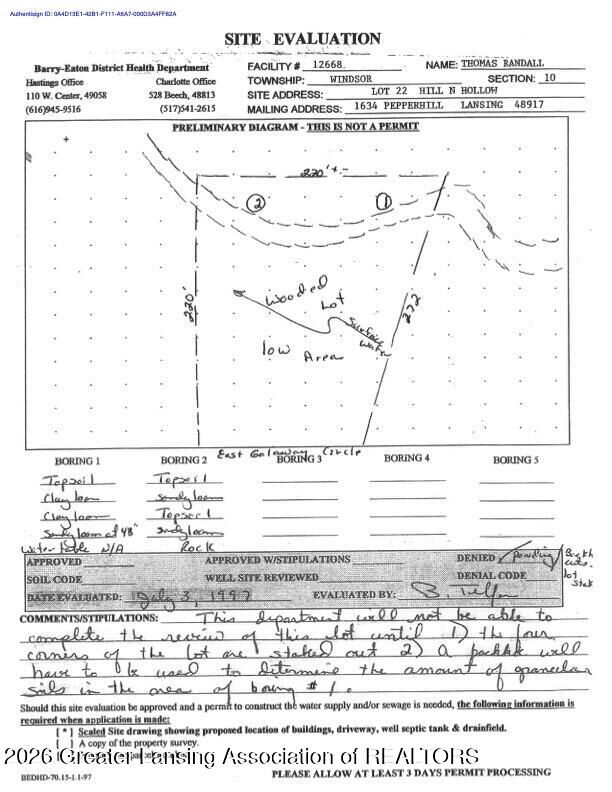 Authentisign ID: 0A4D13E1-42B1-F111-A6A7-000D3A4FF82A
SITE EVALUATION
Barry-Eaton District Health Department
Hastings Office Charlotte Office
110 W. Center, 49058 528 Beech, 48813
(616)945-9516 (517)541-2615
FACILITY # 12668 NAME: THOMAS RANDALL
TOWNSHIP: WINDSOR SECTION: 10
SITE ADDRESS: LOT 22 HILL N HOLLOW
MAILING ADDRESS: 1634 PEPPERHILL LANSING 48917
PRELIMINARY DIAGRAM - THIS IS NOT A PERMIT
220' +-
2 1
220'
272
Wooded
Lot
Surface
Water
low Area
East Galaway Circle
BORING 1 BORING 2 BORING 3 BORING 4 BORING 5
Topsoil Topsoil
Clay loam Sandy loam
Clay loam Topsoil
Sandy loam at 48" Sandy loam
Water table N/A Rock
APPROVED APPROVED W/STIPULATIONS DENIED pending
SOIL CODE WELL SITE REVIEWED DENIAL CODE
Backhoe cuts.
lot stak
DATE EVALUATED: July 3, 1997 EVALUATED BY: B. Telfer
COMMENTS/STIPULATIONS: This department will not be able to
complete the review of this lot until 1) the four
corners of the lot are staked out 2) A backhoe will
have to be used to determine the amount of granular
soils in the area of boring # 1.
Should this site evaluation be approved and a permit to construct the water supply and/or sewage is needed, the following information is
required when application is made:
[ * ] Scaled Site drawing showing proposed location of buildings, driveway, well septic tank & drainfield.
[ ] A copy of the property survey.
2026 Greater Lansing Association of REALTORS
BEDHD-70.15-1.1-97 PLEASE ALLOW AT LEAST 3 DAYS PERMIT PROCESSING